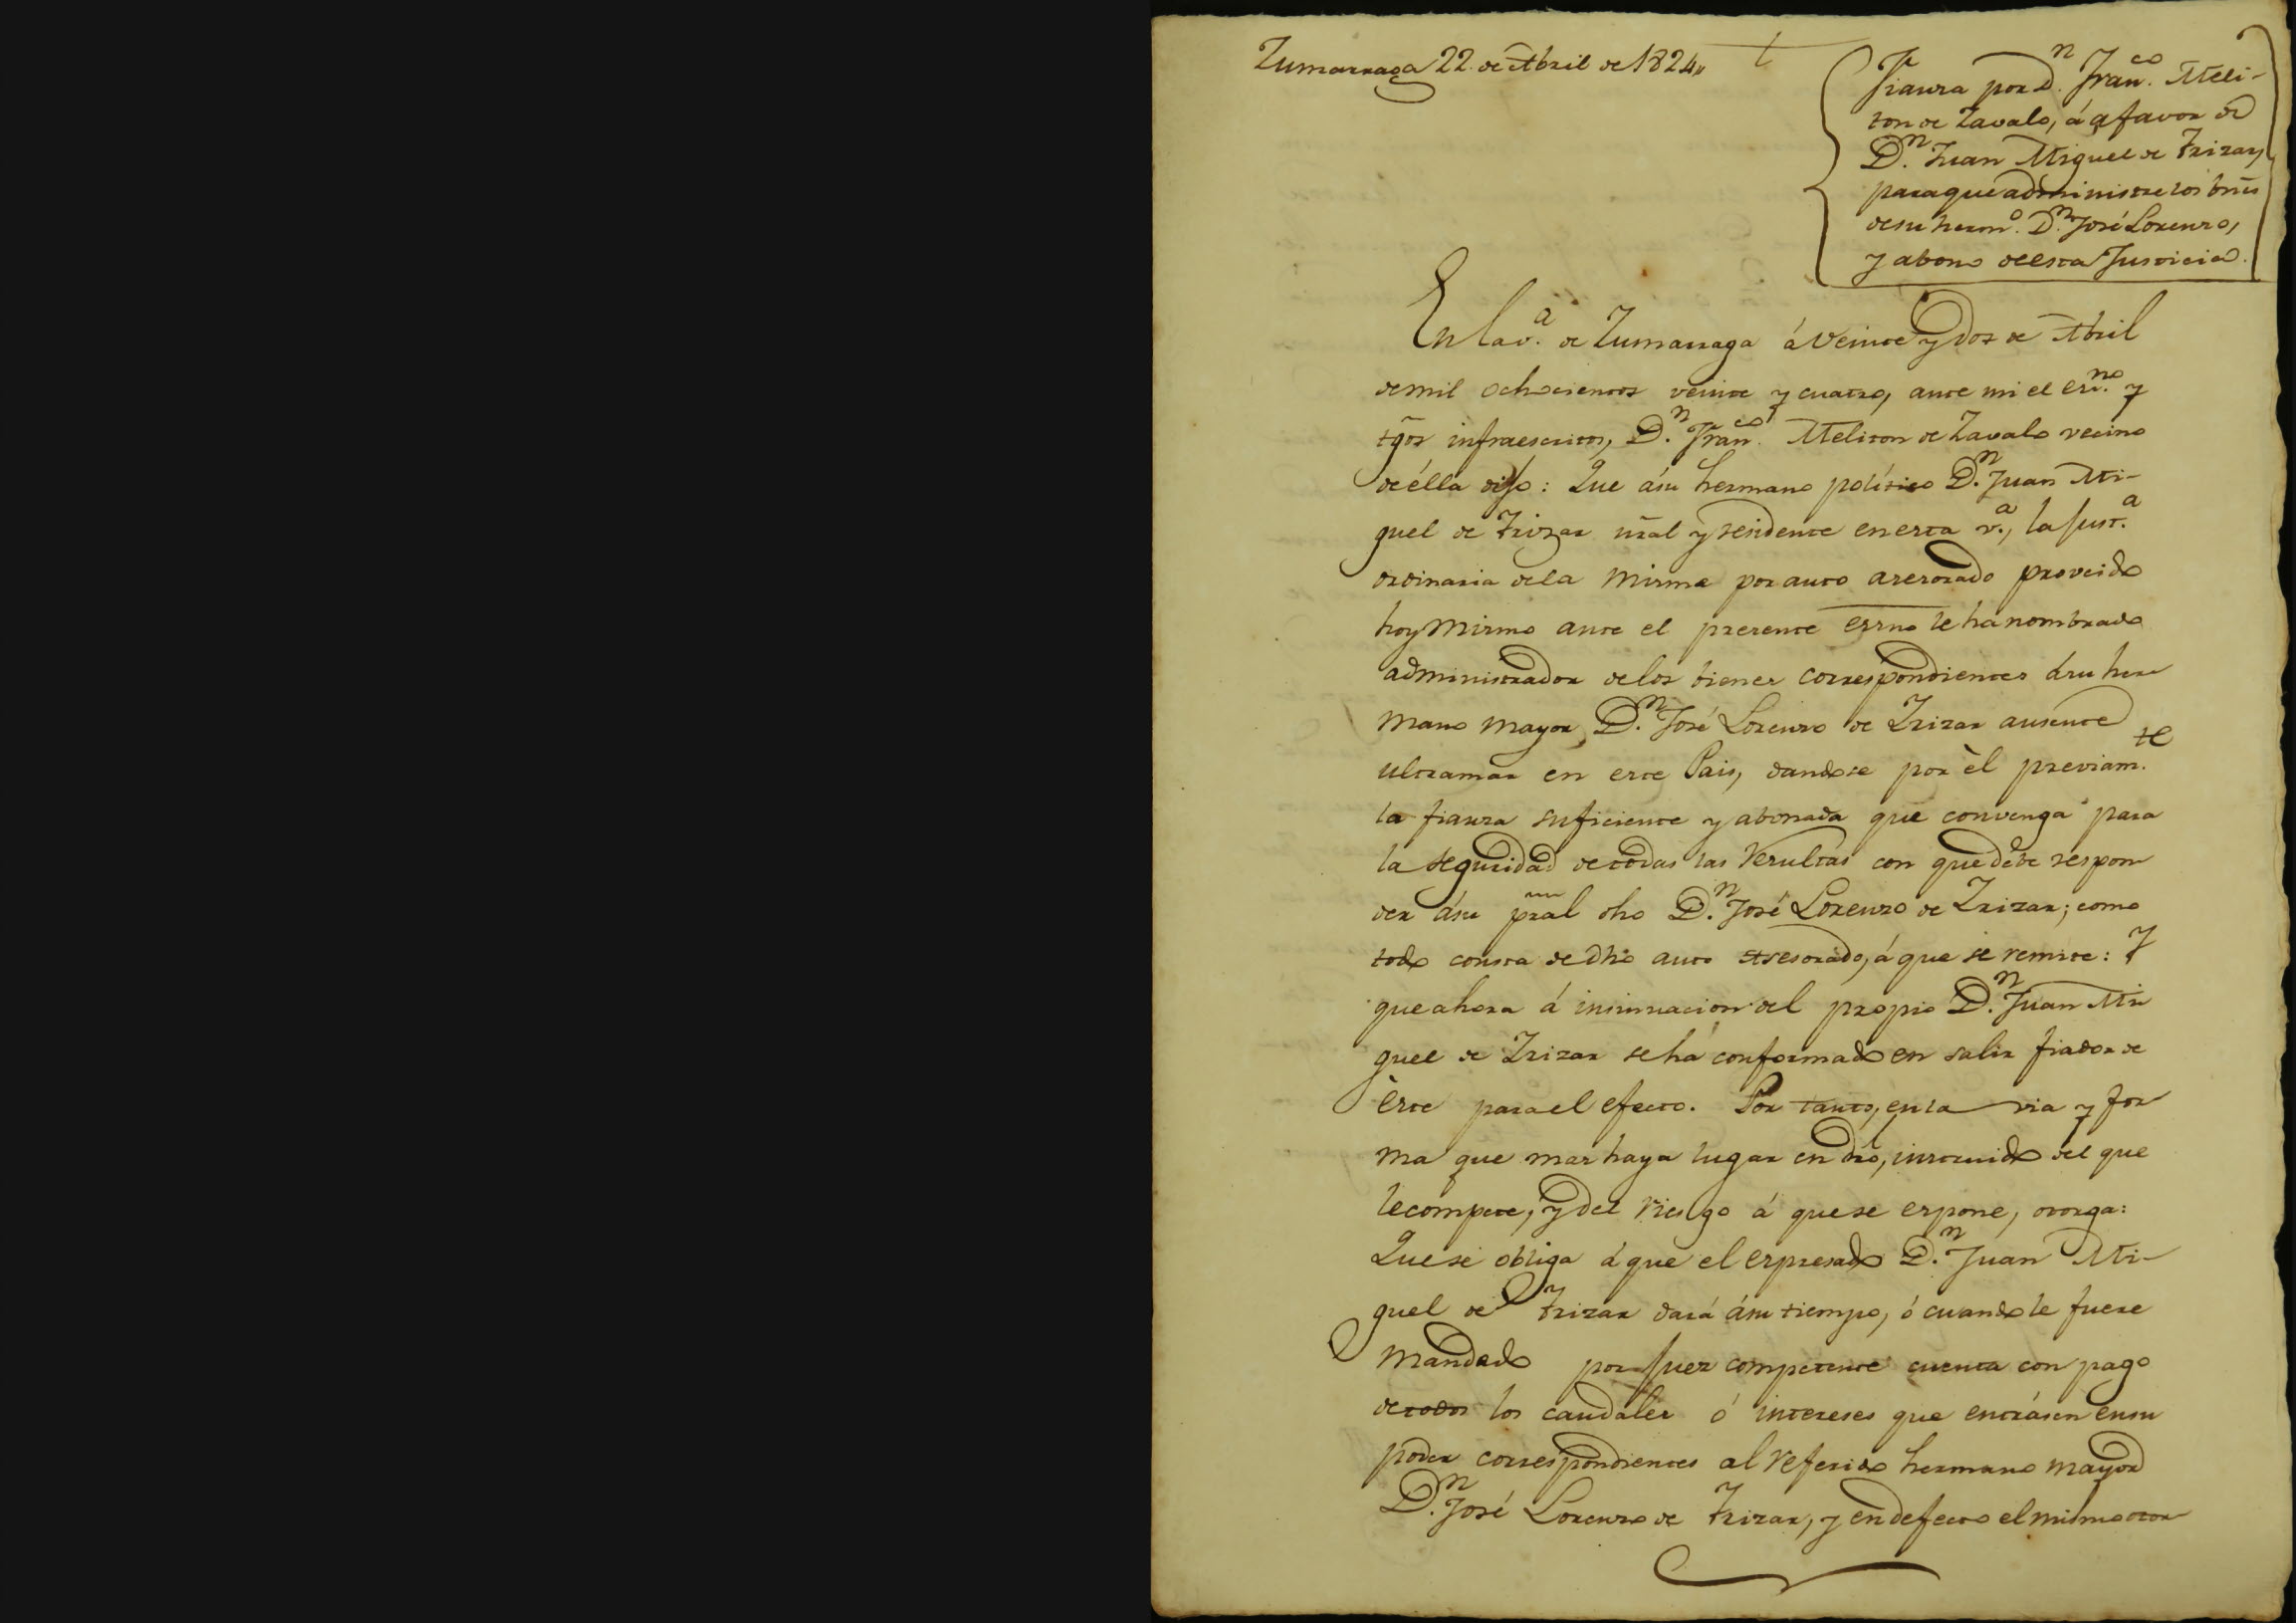 Zumarraga 22 de Abril de 1824,,
Fianza por D.n Fran.co Meli-
ton de Zavalo, á a favor de
D.n Juan Miguel de Irizar,
para que administre los bnēs
de su herm.o D.n José Lorenzo,
y abono de esta Justicia.
En la v.a de Zumarraga á veinte y dos de Abril
de mil ochocientos veinte y cuatro, ante mi el esc.no y
tg̃os infraescritos, D.n Fran.co Meliton de Zavalo vecino
de élla dijo: Que á su hermano político D.n Juan Mi-
guel de Irizar nr̃al y residente en esta v.a, la Just.a
ordinaria de la misma por auto asesorado proveido
hoy mismo ante el presente essno le há nombrado
administrador de los bienes correspondientes á su her
mano mayor D.n José Lorenzo de Irizar ausente
ultramar en este Pais, dandose por èl previam.te
la fianza suficiente y abonada que convenga para
la seguridad de todas las resultas con que debe respon
der á su pral dho D.n José Lorenzo de Irizar; como
todo consta de dho auto Asesorado, á que se remite: Y
que ahora á insinuacion del propio D.n Juan Mi
guel de Irizar se há conformado en salir fiador de
èste para el efecto. Por tanto, en la via y for
ma que mas haya lugar en dro, instruido del que
le compete, y del riesgo á que se espone, otorga:
Que se obliga á que el espresado D.n Juan Mi-
guel de Irizar dará á su tiempo, ó cuando le fuere
mandado por Juez competente cuenta con pago
de todos los caudales ó intereses que entrásen en su
poder correspondientes al referido hermano mayor
D.n José Lorenzo de Irizar, y en defecto el mismo otor